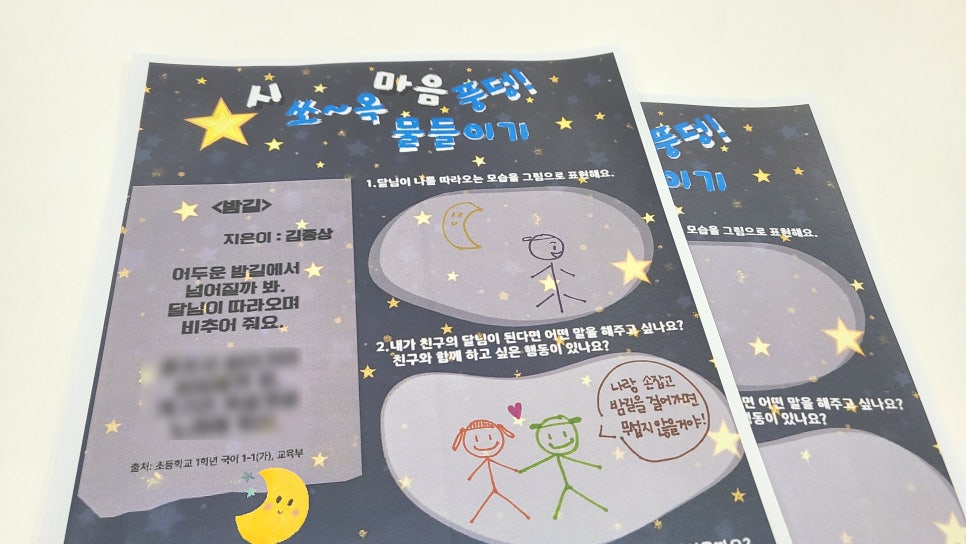 시 쏘~옥 마음 풍덩!
물들이기
<밤길>
지은이 : 김종상
어두운 밤길에서
넘어질까 봐.
달님이 따라오며
비추어 줘요.
출처: 초등학교 1학년 국어 1-1(가), 교육부
1.달님이 나를 따라오는 모습을 그림으로 표현해요.
2.내가 친구의 달님이 된다면 어떤 말을 해주고 싶나요?
친구와 함께 하고 싶은 행동이 있나요?
나랑 손잡고
밤길을 걸어가면
무섭지 않을거야!
풍덩!
이기
모습을 그림으로 표현해요.
면 어떤 말을 해주고 싶나요?
행동이 있나요?